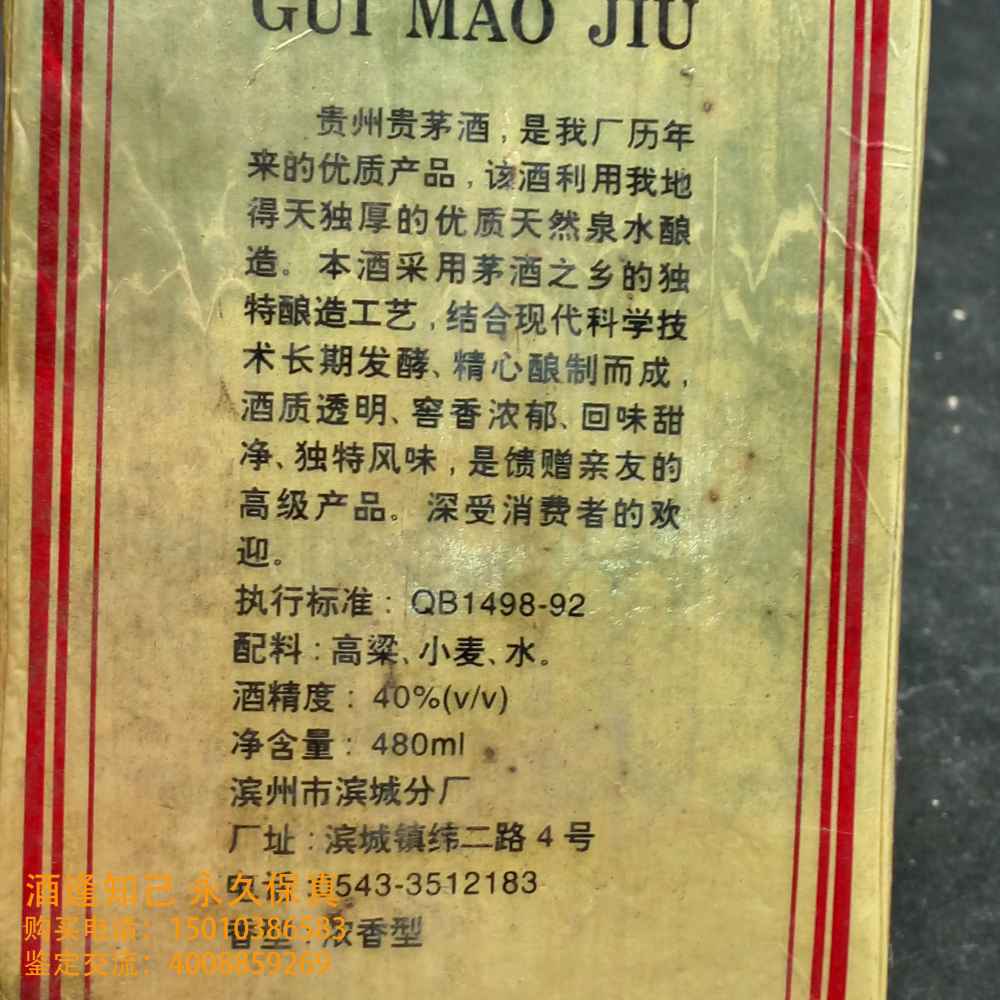 GUI MAO JIU
贵州贵茅酒，是我厂历年
来的优质产品，该酒利用我地
得天独厚的优质天然泉水酿
造。本酒采用茅酒之乡的独
特酿造工艺，结合现代科学技
术长期发酵、精心酿制而成，
酒质透明、窖香浓郁、回味甜
净、独特风味，是馈赠亲友的
高级产品。深受消费者的欢
迎。
执行标准：QB1498-92
配料：高粱、小麦、水。
酒精度：40%(v/v)
净含量：480ml
滨州市滨城分厂
厂址：滨城镇纬二路4号
543-3512183
香型：浓香型
酒逢知己 永久保真
购买电话：15010386583
鉴定交流：4006859269